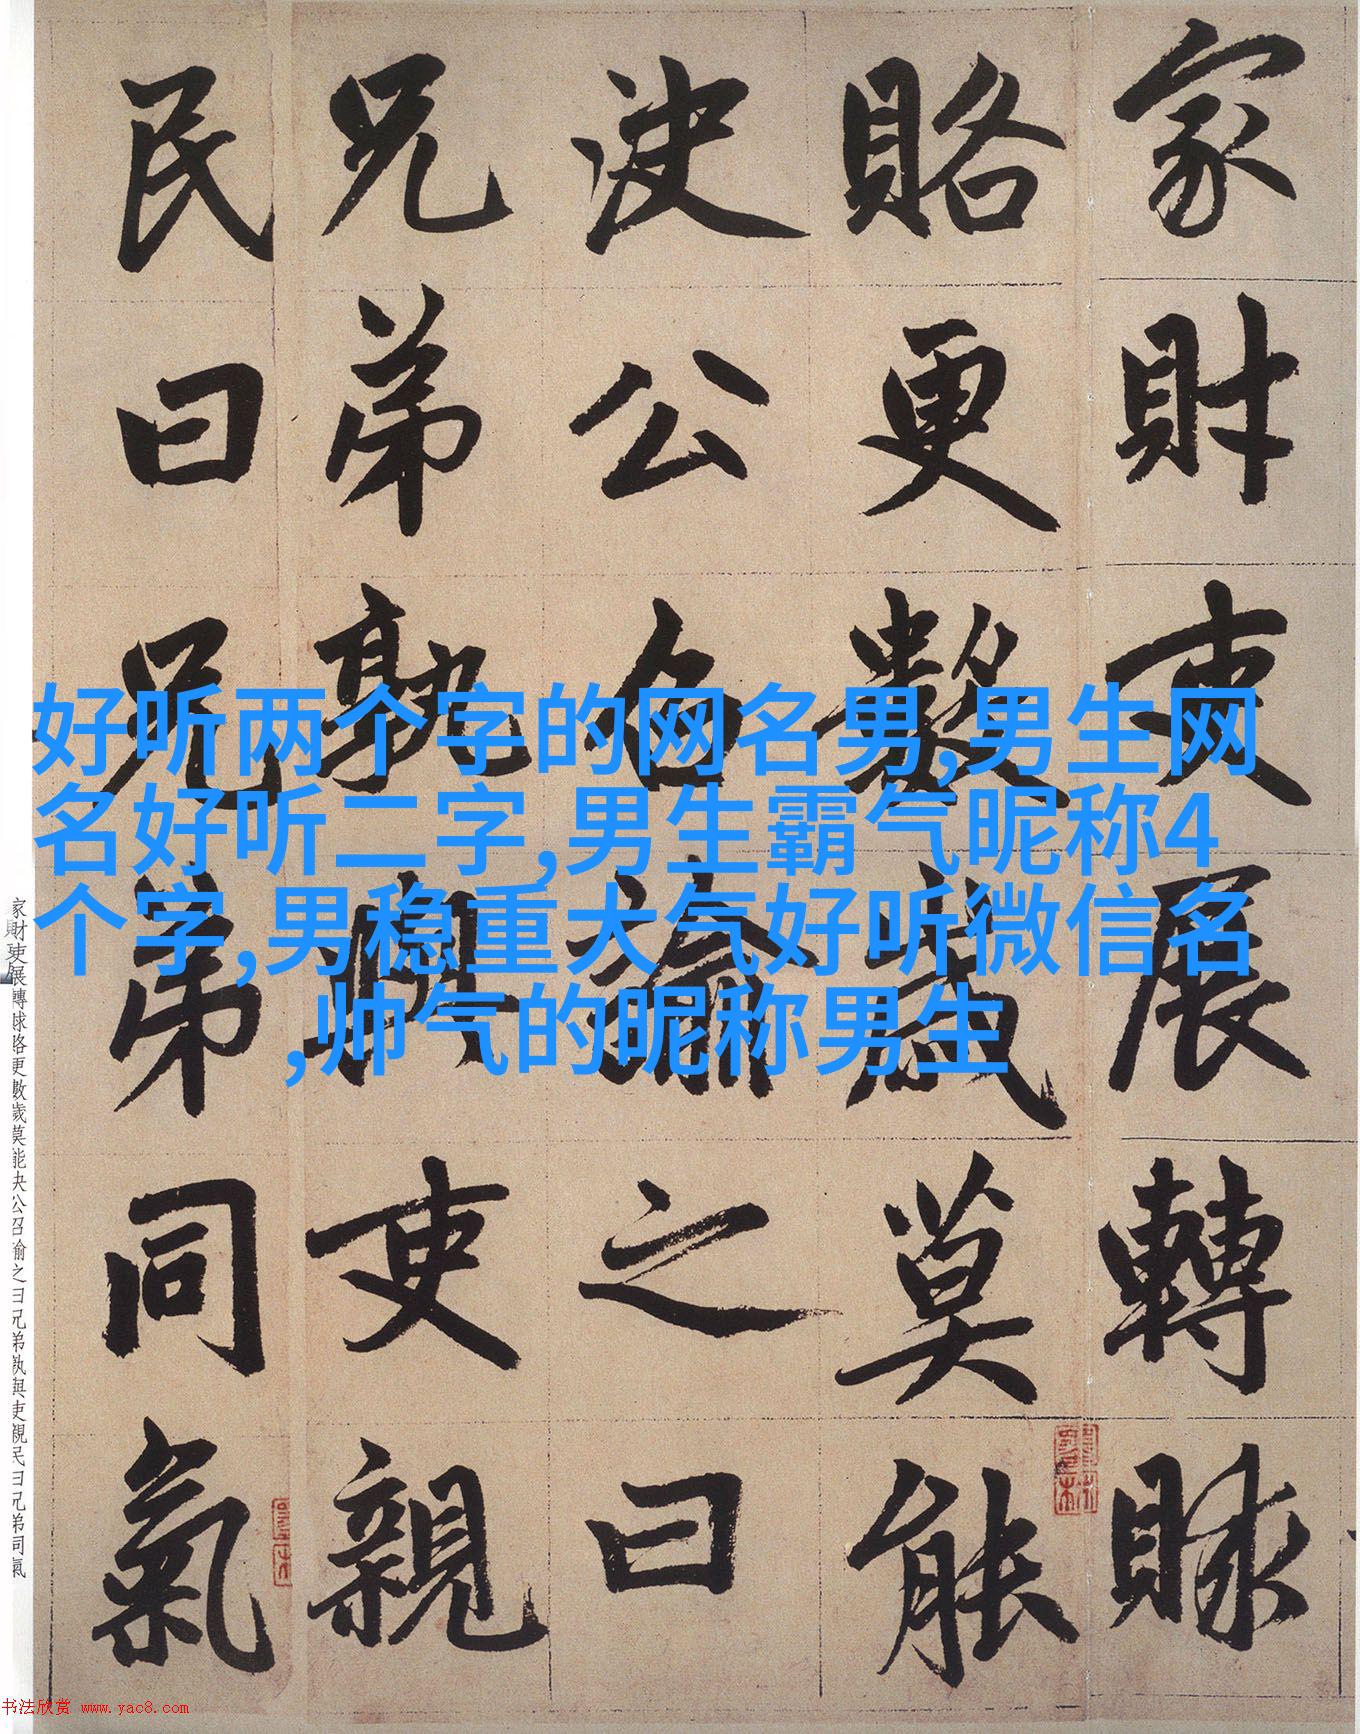 家財吏展轉賕
賂更數歲莫能
決公召諭之曰
兄弟孰與吏親
民曰兄弟同氣
好听两个字的网名男,男生网
名好听二字,男生霸气昵称4
个字,男稳重大气好听微信名
,帅气的昵称男生
家財吏展轉賕賂更數歲莫能決公召諭之曰兄弟孰與吏親民曰兄弟同氣
书法欣赏 www.yac8.com